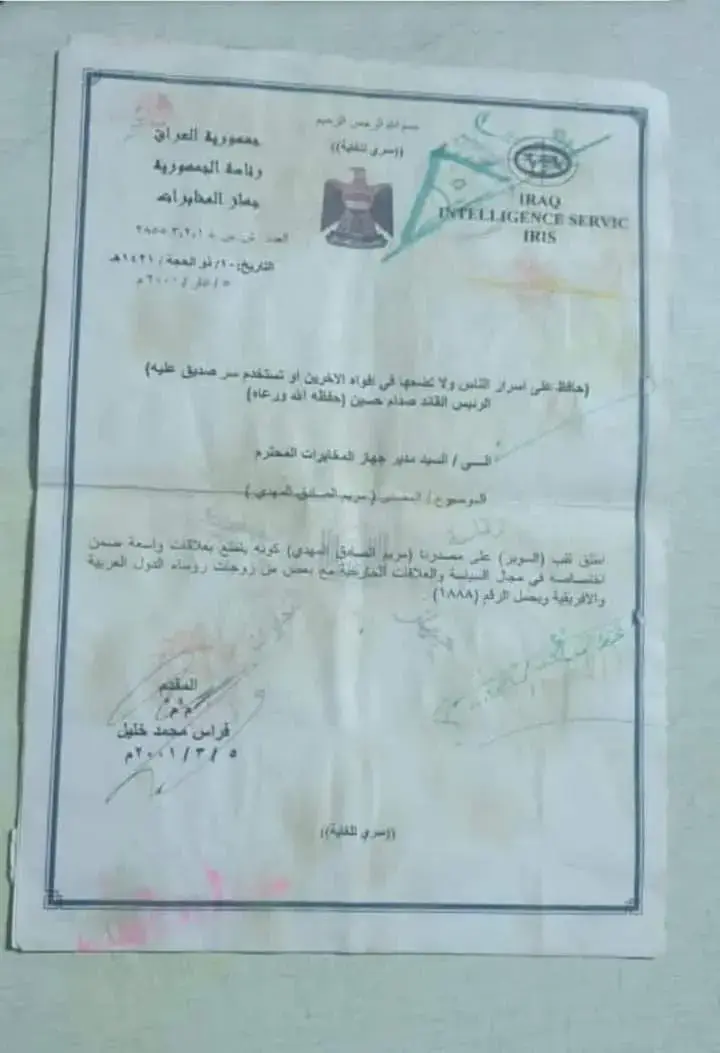 بسم الله الرحمن الرحيم
((سري للغاية))
جمهورية العراق
رئاسة الجمهورية
جهاز المخابرات
IRAQ
INTELLIGENCE SERVIC
IRIS
العدد
التاريخ: ١٠/ ذو الحجة / ١٤٢١هـ
٥ / اذار / ٢٠٠١ م
(حافظ على اسرار الناس ولا تضعها في افواه الاخرين او تستخدم سر صديق عليه)
الرئيس القائد صدام حسين (حفظه الله ورعاه)
الــى / السيد مدير جهاز المخابرات المحترم
الموضوع / المصدر ( مريم الصادق المهدي )
اطلق لقب (السوبر) على مصدرنا (مريم الصادق المهدي) كونه يتمتع بعلاقات واسعة ضمن
اختصاصه في مجال السياسة والعلاقات الخارجية مع بعض من زوجات رؤساء الدول العربية
والافريقية ويحمل الرقم (١٨٨٨)
المقدم
فراس محمد خليل
٥ / ٣ / ٢٠٠١م
((سري للغاية))